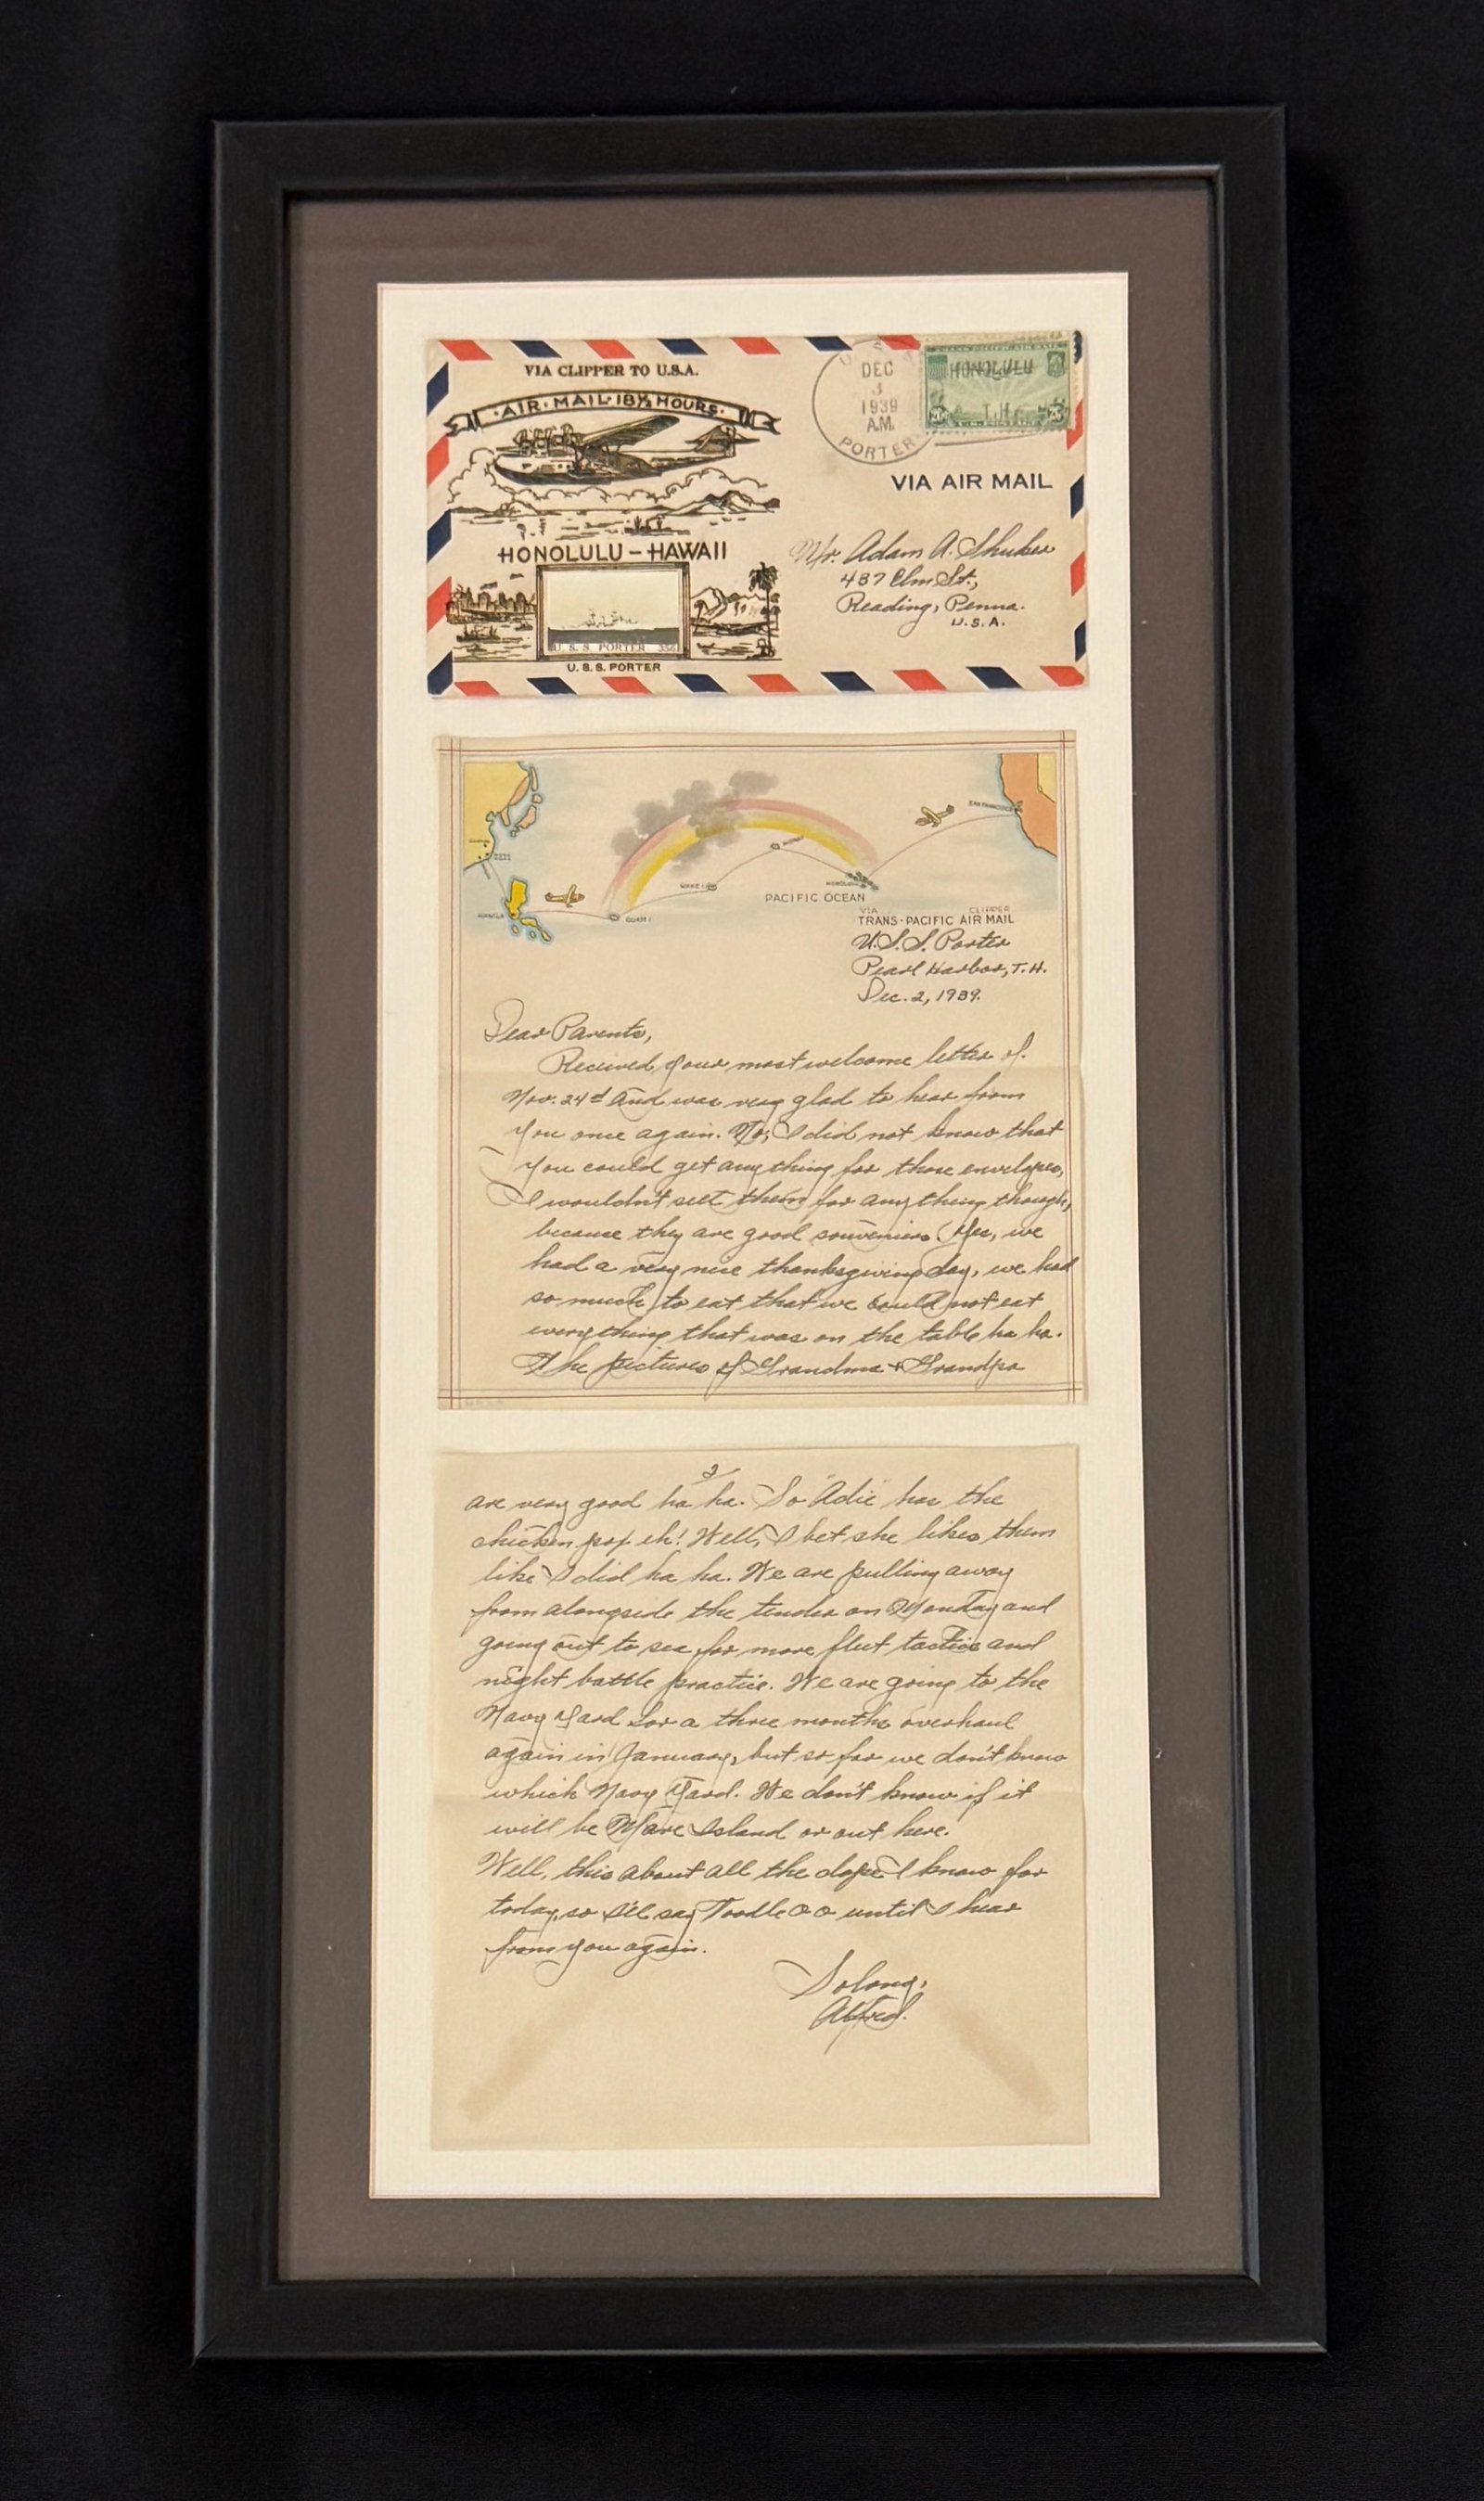 VIA CLIPPER TO U.S.A.
AIR·MAIL·18½ HOURS·
HONOLULU – HAWAII
U. S. S. PORTER 356
U. S. S. PORTER
U.S.S.
DEC
3
1939
A.M.
PORTER
HONOLULU
T.H.
20¢ 20¢
VIA AIR MAIL
Mr. Adam A. Shuker
437 Elm St.,
Reading, Penna.
U.S.A.
SAN FRANCISCO
MIDWAY
WAKE I.
HONOLULU
GUAM I.
MANILA
PACIFIC OCEAN
VIA CLIPPER
TRANS-PACIFIC AIR MAIL
U.S.S. Porter
Pearl Harbor, T.H.
Dec. 2, 1939.
Dear Parents,
Received your most welcome letter of
Nov. 24th and was very glad to hear from
you once again. No, I did not know that
you could get anything for those envelopes,
I wouldn't sell them for anything though,
because they are good souveniers. Yes, we
had a very nice thanksgiving day, we had
so much to eat that we could not eat
everything that was on the table ha ha.
The pictures of Grandma + Grandpa
2
are very good ha ha. So "Adie" has the
chicken pox eh! Well, I bet she likes them
like I did ha ha. We are pulling away
from alongside the tender on Monday and
going out to sea for more fleet tactics and
night battle practice. We are going to the
Navy Yard for a three months overhaul
again in January, but so far we don't know
which Navy Yard. We don't know if it
will be Mare Island or out here.
Well, this about all the dope I know for
today, so I'll say Toodle oo until I hear
from you again.
So long,
Alfred.